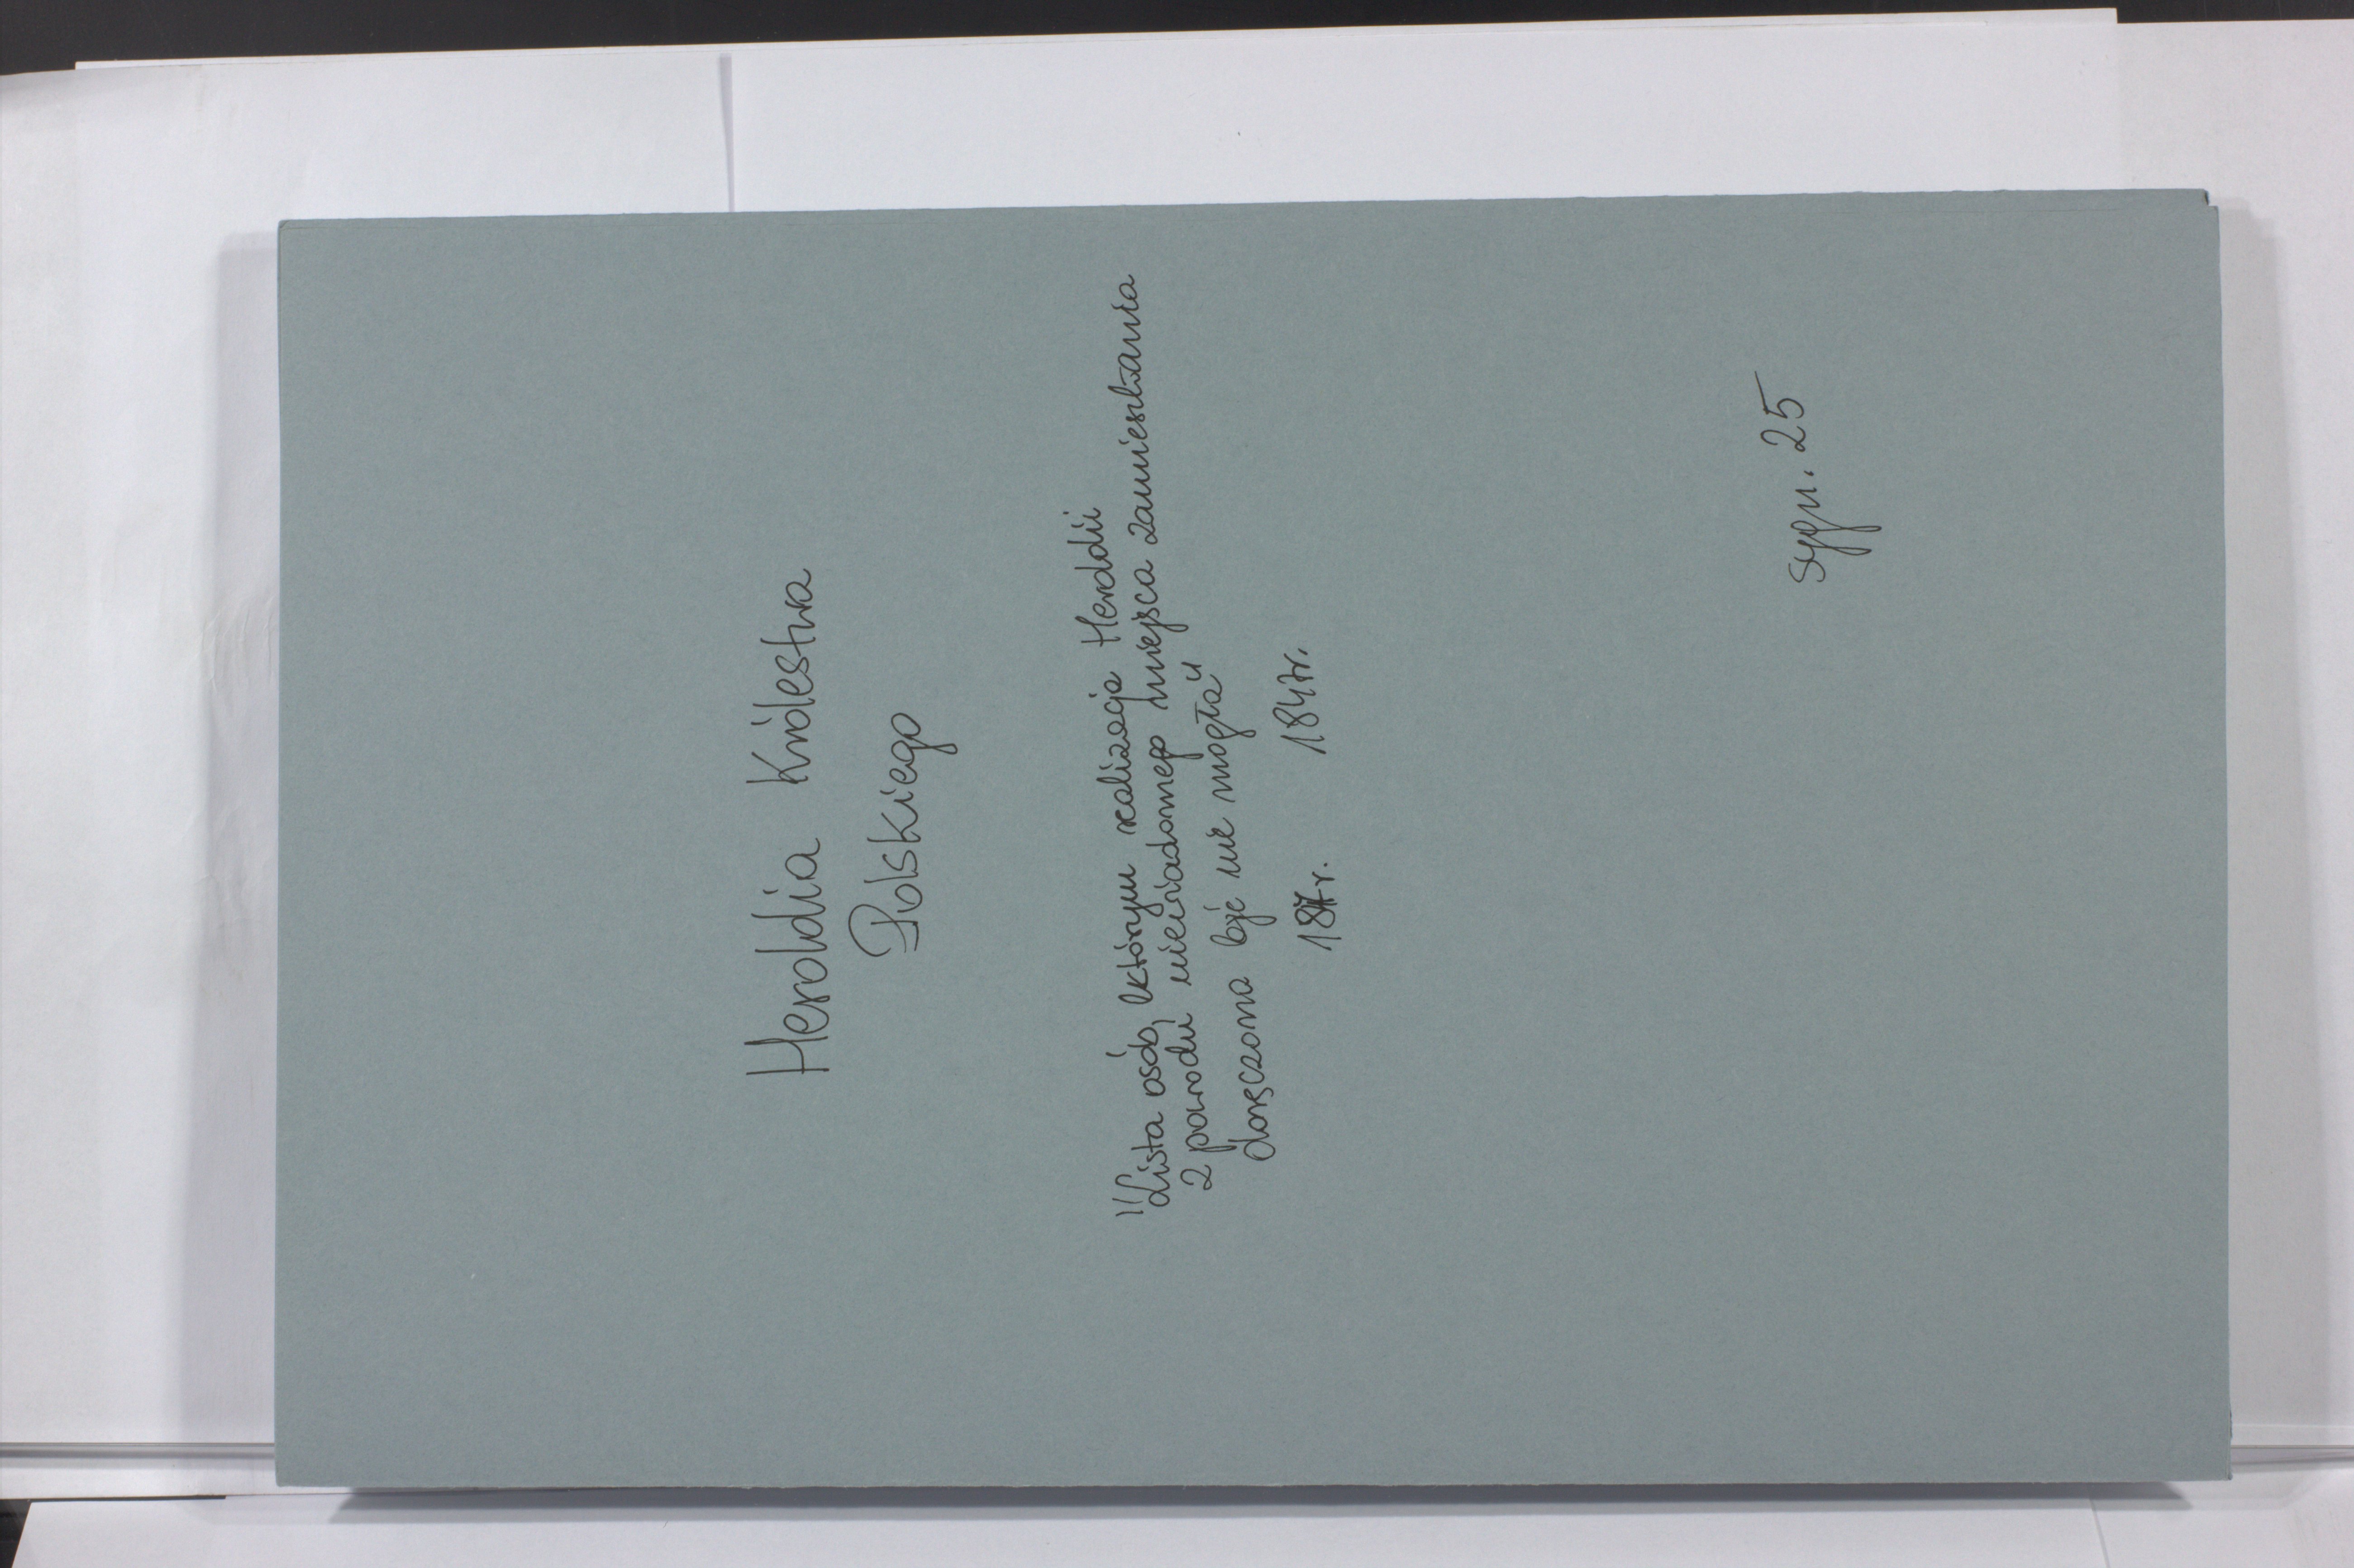 Heroldia Królestwa
Polskiego
"Lista osób, którym realizacja Heroldii
z powodu niewiadomego miejsca zamieszkania
doręczona być nie mogła"
1847r.
Sygn. 25